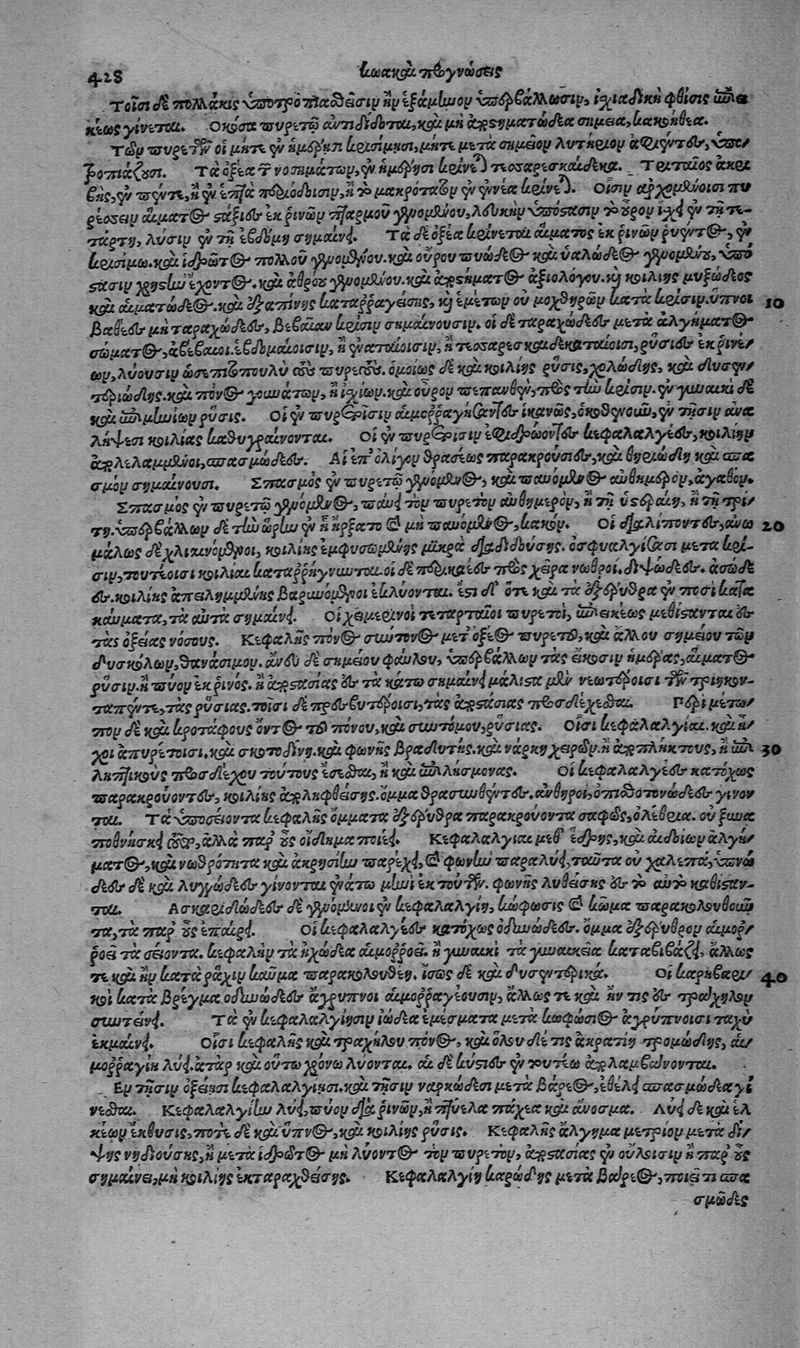 428 Κωακαὶ προγνώσεις
Τοῖσι δὲ πολλάκις ὑποτροπιασθεῖσιν ἢν ἑξάμηνον ὑπερβάλλωσιν, ἰχιαδικὴ φθίσις ἐπιει
κέως γίνεται. Ὁκόσα πυρετῷ ἀντιδίδοται, καὶ μὴ ἀποσηματώδεα σημεῖα, κακοήθεα.
Τῶν πυρετῶν οἱ μήτε ἐν ἡμέρῃσι κρισίμῃσι, μήτε μετὰ σημείου λυτηρίου ἀφιέντες, ὑπο
τροπιάζουσι. Τὰ ὀξέα τῶν νοσημάτων, ἐν ἡμέρῃσι κρίνεται τεσσαρεσκαίδεκα. Τριταῖος ἀκρι
βὴς, ἐν πέντε, ἢ ἐν ἑπτὰ περιόδοισιν, ἢ τὸ μακρότατον ἐν ἐννέα κρίνεται. Οἷσιν ἀρχομένοισι πυ
ρέσσειν αἵματος στάξιες ἐκ ῥινῶν πταρμοῦ γενομένου, λευκὴν ὑπόστασιν τὸ οὖρον ἴσχει ἐν τῇ τε-
τάρτῃ, λύσιν ἐν τῇ ἑβδόμῃ σημαίνει. Τὰ δὲ ὀξέα κρίνεται αἵματος ἐκ ῥινῶν ῥυέντος, ἐν
κρισίμῳ. καὶ ἱδρῶτος πολλοῦ γενομένου. καὶ οὔρου πυώδεος καὶ ὑαλώδεος γενομένου, ὑπό
στασιν χρηστὴν ἔχοντος. καὶ ἀθρόου γενομένου. καὶ ἀποστήματος ἀξιολόγου. καὶ κοιλίης μυξώδεος
καὶ αἱματώδεος. καὶ ἐξαπίνης καταρραγείσης, καὶ ἐμέτων οὐ μοχθηρῶν κατὰ κρίσιν. ὕπνοι 10
βαθέες μὴ ταραχώδεες, βεβαίαν κρίσιν σημαίνουσιν. οἱ δὲ ταραχώδεες μετὰ ἀλγήματος
σώματος, ἀβέβαιοι. ἑβδομαίοισιν, ἢ ἐναταίοισιν, ἢ τεσσαρεσκαιδεκαταίοισι, ῥύσιες ἐκ ῥινέ-
ων, λύουσιν ὡς ἐπιτοπουλὺ τοὺς πυρετούς. ὁμοίως δὲ καὶ κοιλίης ῥύσις, χολώδης, καὶ δυσεν-
τεριώδης. καὶ πόνος γουνάτων, ἢ ἰσχίων. καὶ οὖρον πεπανθὲν, πρὸς τὴν κρίσιν. ἐν γυναικὶ δὲ
καὶ ἐπιμηνίων ῥύσις. Οἱ ἐν πυρετοῖσιν αἱμορραγήσαντες ἱκανῶς, ὁκοθενοῦν, ἐν τῇσιν ἀνα
λήψεσι κοιλίας καθυγραίνονται. Οἱ ἐν πυρετοῖσιν ἐφιδρώοντες κεφαλαλγέες, κοιλίην
ἀπολελαμμένοι, σπασμώδεες. Αἱ ἐπ' ὀλίγον θρασέως παρακρούσιες, καὶ θηριώδη καὶ σπα
σμὸν σημαίνουσι. Σπασμὸς ἐν πυρετῷ γενόμενος, καὶ παυόμενος αὐθημερὸν, ἀγαθόν.
Σπασμὸς ἐν πυρετῷ γενόμενος, παύει τὸν πυρετὸν αὐθημερὸν, ἢ τῇ ὑστεραίῃ, ἢ τῇ τρί-
τῃ. ὑπερβάλλων δὲ τὴν ὥρην ἐν ᾗ ἤρξατο καὶ μὴ παυόμενος, κακόν. Οἱ διαλίποντες, ἀνω 20
μάλως δὲ χλιαινόμενοι, κοιλίης ἐμφυσωμένης μικρὰ διαδιδούσης. ὀσφυαλγίζουσι μετὰ κρί-
σιν, τουτέοισι κοιλίαι καταρρήγνυνται. οἱ δὲ περικαέες πρὸς χεῖρα νωθροί. διψώδεες. ἀσώδε
ες. κοιλίης ἀπειλημμένης βαρυνόμενοι ἐκλύονται. ἔστι δ' ὅτε καὶ τὰ ἐξέρυθρα ἐν ποσὶ κατα
καύματα, τὰ αὐτὰ σημαίνει. Οἱ χειμερινοὶ τεταρταῖοι πυρετοὶ, ἐπιεικέως μεθίστανται ἐς
τὰς ὀξείας νόσους. Κεφαλῆς πόνος σύντονος μετ' ὀξέος πυρετοῦ, καὶ ἄλλου σημείου τῶν
δυσκόλων, θανάσιμον. ἄνευ δὲ σημείου φαύλου, ὑπερβάλλων τὰς εἴκοσιν ἡμέρας, αἵματος
ῥύσιν. ἢ πύον ἐκ ῥινός. ἢ ἀποστασίας ἐς τὰ κάτω σημαίνει μάλιστα μὲν νεωτέροισι τῶν τριηκον-
ταπέντε, τὰς ῥύσιας. τοῖσι δὲ πρεσβυτέροισι, τὰς ἀποστάσιας προσδέχεσθαι. Περὶ μέτω-
πον δὲ καὶ κροτάφους ὄντος τοῦ πόνου, καὶ συντόμου, ῥύσιας. Οἷσι κεφαλαλγίαι. καὶ ἦ
χοι ἀπυρέτοισι. καὶ σκοτοδίνη. καὶ φωνῆς βραδυτὴς. καὶ νάρκη χειρῶν. ἢ ἀποπλήκτους, ἢ ἐπι 30
ληπτικοὺς προσδέχου τούτους ἔσεσθαι, ἢ καὶ ἐπιλήσμονας. Οἱ κεφαλαλγέες κατόχως
παρακρούοντες, κοιλίης ἀποληφθείσης. ὄμμα θρασυνθέντες. ἀνθηροὶ, ὀπισθοτονώδεες γίνον
ται. Τὰ ὑποσείοντα κεφαλῆς ὄμματα ἐξέρυθρα παρακρούοντα σαφῶς, ὀλέθρια. οὐ ξυνα
ποθνῄσκει τοῦτο, ἀλλὰ παρ' οὖς οἴδημα ποιέει. Κεφαλαλγίαι μεθ' ἕδρης, καὶ αἰδοίων ἀλγή-
ματος, καὶ νωθρότητα καὶ ἀκρησίην παρέχει, καὶ φωνὴν παραλύει, ταῦτα οὐ χαλεπὰ, ὑπνώ
δεες δὲ καὶ λυγγώδεες γίνονται ἐνάτῳ μηνὶ ἐκ τούτων. φωνῆς λυθείσης ἐς τὸ αὐτὸ καθίσταν-
ται. Ἀσκαριδώδεες δὲ γενόμενοι ἐν κεφαλαλγίῃ, κώφωσις καὶ κῶμα παρακολουθοῦν
τα, τὰ παρ' οὖς ἐπαίρει. Οἱ κεφαλαλγέες κατόχως ὀδυνώδεες. ὄμμα ἐξέρυθρον αἱμορ-
ροεῖ τὰ σείοντα. κεφαλὴν τὰ ἠχώδεα αἱμορροεῖ. ἢ γυναικὶ τὰ γυναικεῖα καταβιβάζει, ἄλλως
τε καὶ ἢν κατὰ ῥάχιν καῦμα παρακολουθέῃ. ἴσως δὲ καὶ δυσεντερικά. Οἱ καρηβαρι- 40
κοὶ κατὰ βρέγμα ὀδυνώδεες ἄγρυπνοι αἱμορραγέουσιν, ἄλλως τε καὶ ἤν τις ἐς τράχηλον
συντείνει. Τὰ ἐν κεφαλαλγίῃσιν ἰώδεα ἐμέσματα μετὰ κωφώσιος ἀγρύπνοισι ταχὺ
ἐκμαίνει. Οἷσι κεφαλῆς καὶ τραχήλου πόνος, καὶ ὅλου δέ τις ἀκρατίη τρομώδης, αἱ-
μορραγίη λύει. ἀτὰρ καὶ οὕτω χρόνῳ λύονται. αἱ δὲ κύστιες ἐν τουτέῳ ἀπολαμβάνονται.
Ἐν τῇσιν ὀξείῃσι κεφαλαλγίῃσι. καὶ τῇσιν ναρκώδεσι μετὰ βάρεος, ἐθέλει σπασμώδεα γί
νεσθαι. Κεφαλαλγίην λύει, πύον διὰ ῥινῶν, ἢ πτύελα πάχεα καὶ ἄνοσμα. Λύει δὲ καὶ ἑλ
κέων ἔκθυσις, ποτὲ δὲ καὶ ὕπνος, καὶ κοιλίης ῥύσις. Κεφαλῆς ἄλγημα μέτριον μετὰ δί-
ψης νηδιούσης, ἢ μετὰ ἱδρῶτος μὴ λύοντος τὸν πυρετὸν, ἀποστασίας ἐν οὔλοισιν ἢ παρ' οὖς
σημαίνει, μὴ κοιλίης ἐκταραχθείσης. Κεφαλαλγίη καρώδης μετὰ βάρεος, ποιεῖ τι σπα
σμῶδες